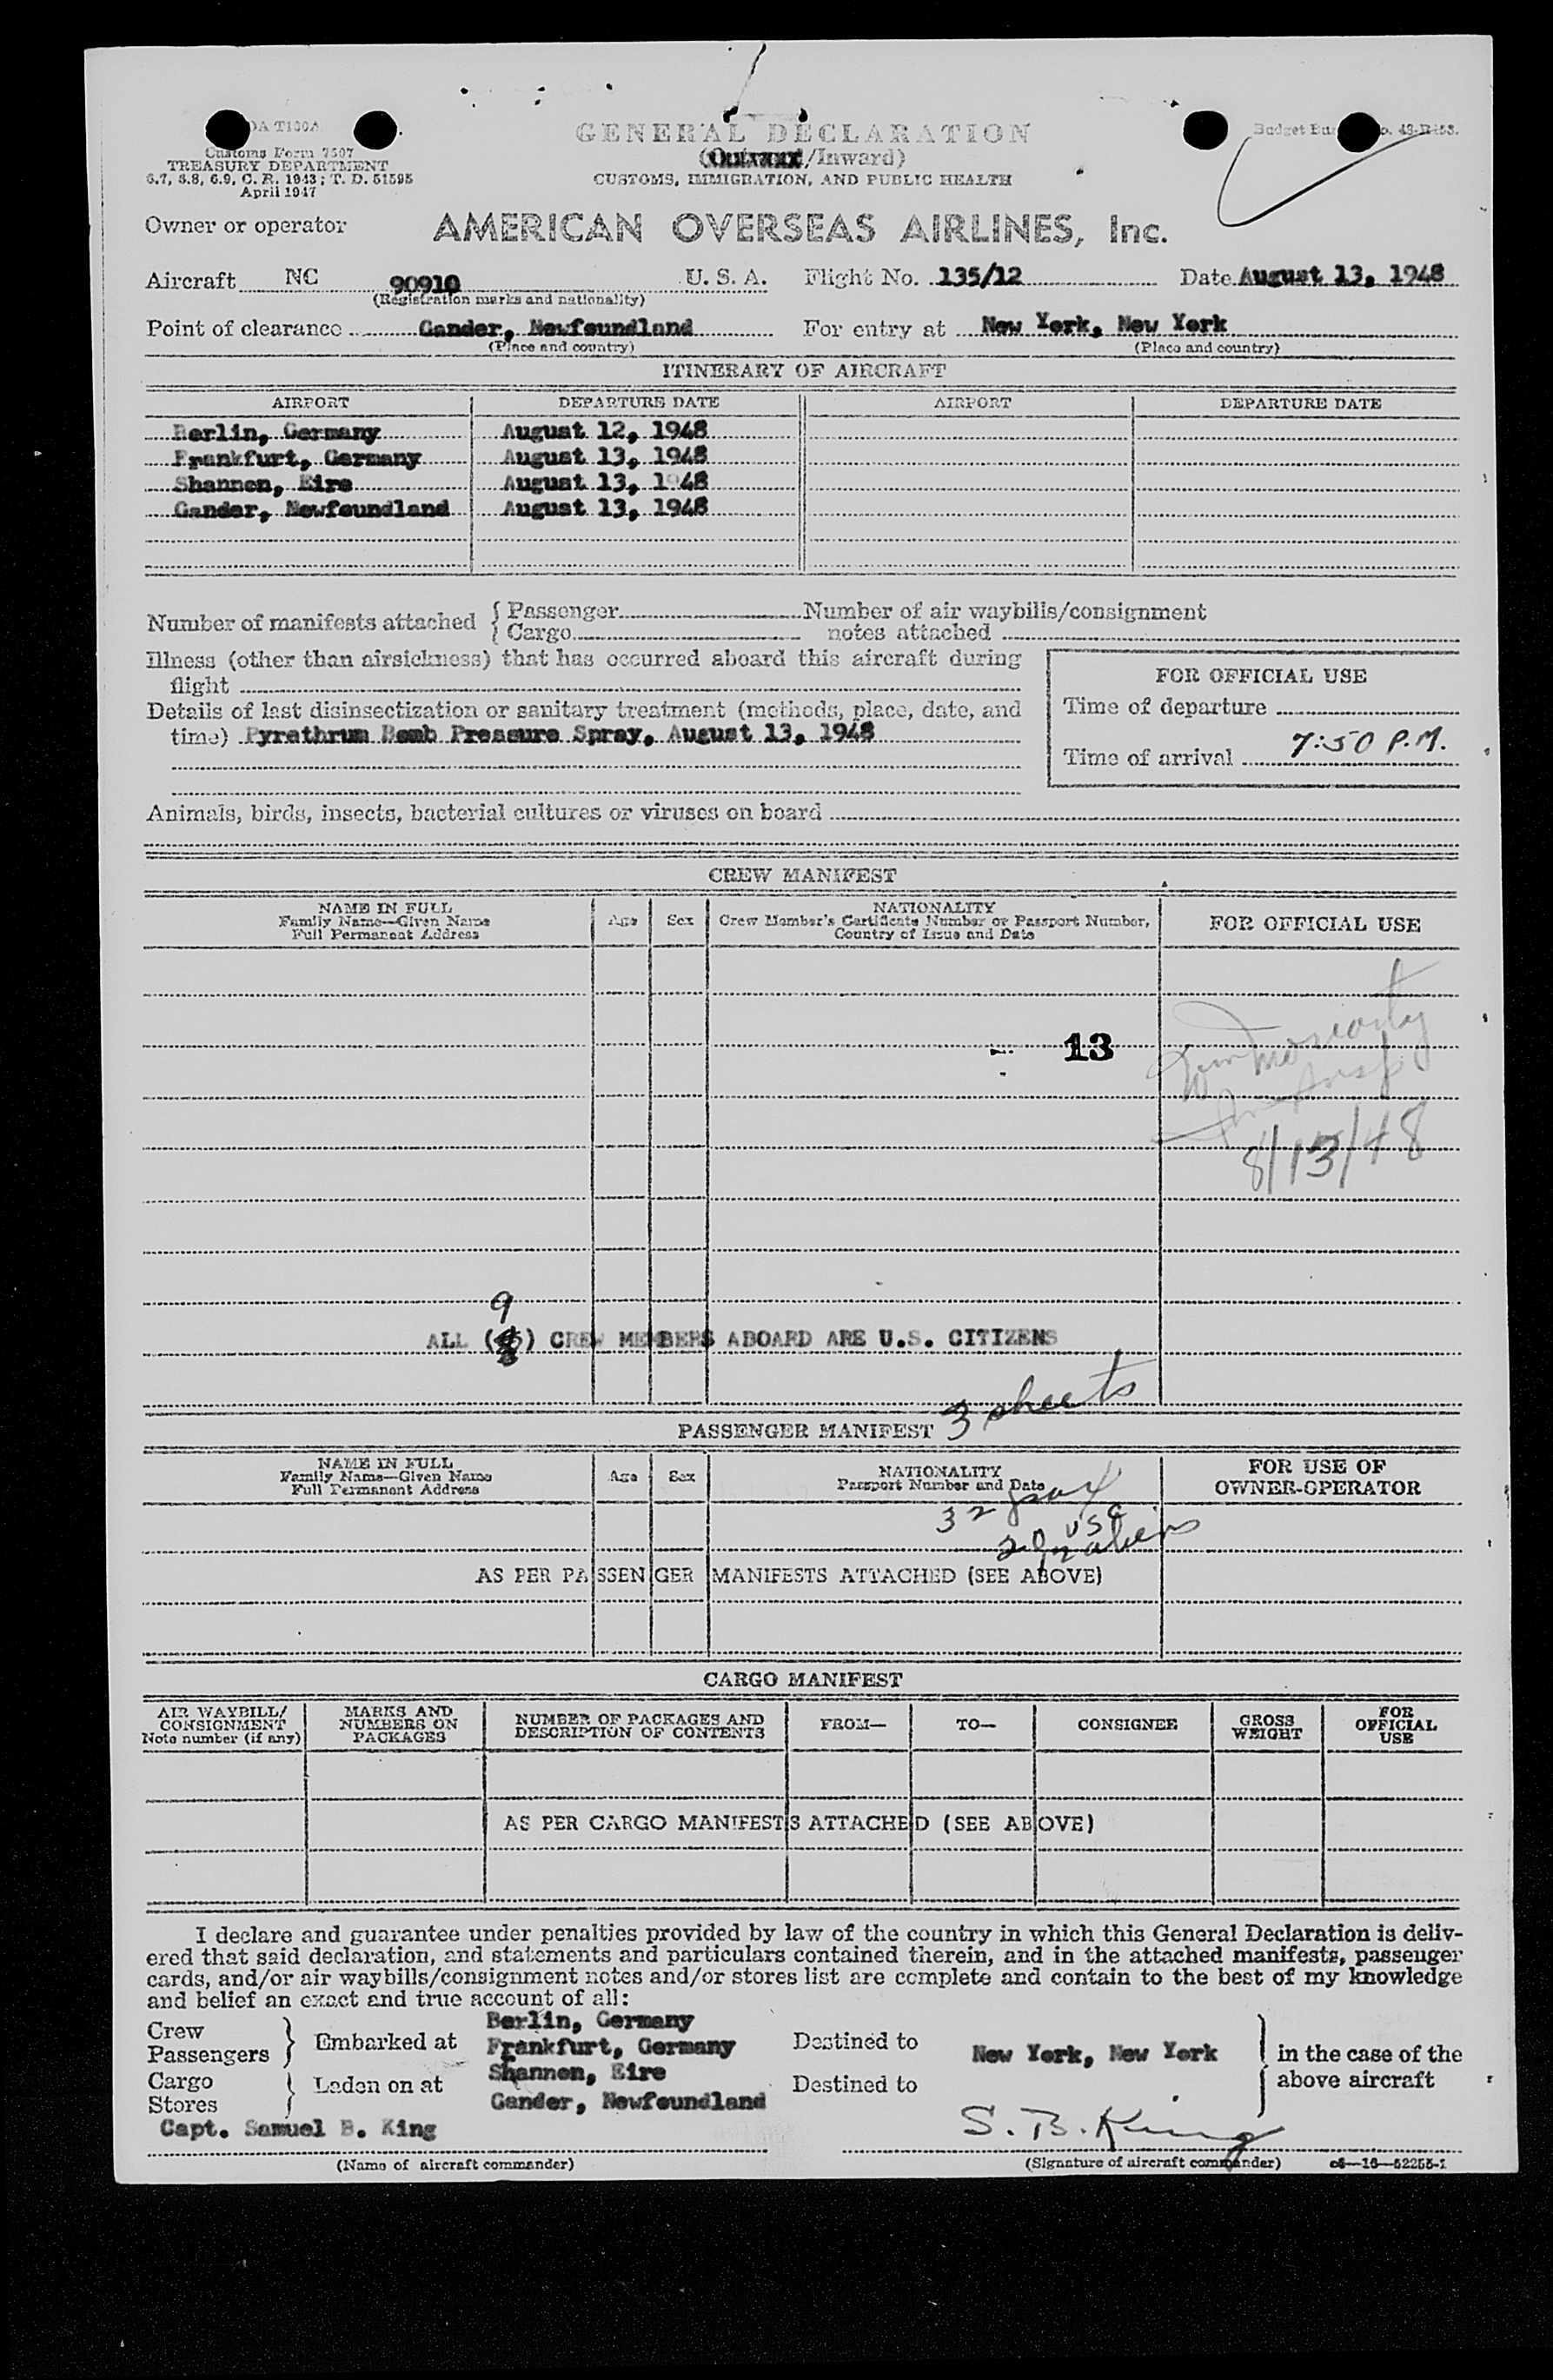 DA T100A
Customs Form 7507
TREASURY DEPARTMENT
6.7, 6.8, 6.9, C. R. 1943; T. D. 51595
April 1947
GENERAL DECLARATION
(Outward/Inward)
CUSTOMS, IMMIGRATION, AND PUBLIC HEALTH
Budget No. 48-R253.
Owner or operator AMERICAN OVERSEAS AIRLINES, Inc.
Aircraft NC 90910 U. S. A. Flight No. 135/12 Date August 13, 1948
(Registration marks and nationality)
Point of clearance Gander, Newfoundland For entry at New York, New York
(Place and country) (Place and country)
ITINERARY OF AIRCRAFT
AIRPORT DEPARTURE DATE AIRPORT DEPARTURE DATE
Berlin, Germany August 12, 1948
Frankfurt, Germany August 13, 1948
Shannon, Eire August 13, 1948
Gander, Newfoundland August 13, 1948
Number of manifests attached { Passenger Number of air waybills/consignment
Cargo notes attached
Illness (other than airsickness) that has occurred aboard this aircraft during
flight
Details of last disinsectization or sanitary treatment (methods, place, date, and
time) Pyrethrum Bomb Pressure Spray, August 13, 1948
FOR OFFICIAL USE
Time of departure
Time of arrival 7:50 P.M.
Animals, birds, insects, bacterial cultures or viruses on board
CREW MANIFEST
NAME IN FULL
Family Name—Given Name
Full Permanent Address
Age
Sex
NATIONALITY
Crew Member's Certificate Number or Passport Number,
Country of Issue and Date
FOR OFFICIAL USE
13
Moriarty
Insp
8/13/48
9
ALL ( ) CREW MEMBERS ABOARD ARE U.S. CITIZENS
PASSENGER MANIFEST 3 sheets
NAME IN FULL
Family Name—Given Name
Full Permanent Address
Age
Sex
NATIONALITY
Passport Number and Date
FOR USE OF
OWNER-OPERATOR
32 pax
USC
aliens
AS PER PASSENGER MANIFESTS ATTACHED (SEE ABOVE)
CARGO MANIFEST
AIR WAYBILL/
CONSIGNMENT
Note number (if any)
MARKS AND
NUMBERS ON
PACKAGES
NUMBER OF PACKAGES AND
DESCRIPTION OF CONTENTS
FROM—
TO—
CONSIGNEE
GROSS
WEIGHT
FOR
OFFICIAL
USE
AS PER CARGO MANIFESTS ATTACHED (SEE ABOVE)
I declare and guarantee under penalties provided by law of the country in which this General Declaration is deliv-
ered that said declaration, and statements and particulars contained therein, and in the attached manifests, passenger
cards, and/or air waybills/consignment notes and/or stores list are complete and contain to the best of my knowledge
and belief an exact and true account of all:
Crew
Passengers } Embarked at
Cargo
Stores } Laden on at
Berlin, Germany
Frankfurt, Germany
Shannon, Eire
Gander, Newfoundland
Destined to
Destined to
New York, New York
} in the case of the
above aircraft
Capt. Samuel B. King
S. B. King
(Name of aircraft commander) (Signature of aircraft commander) c6—16—52255-1